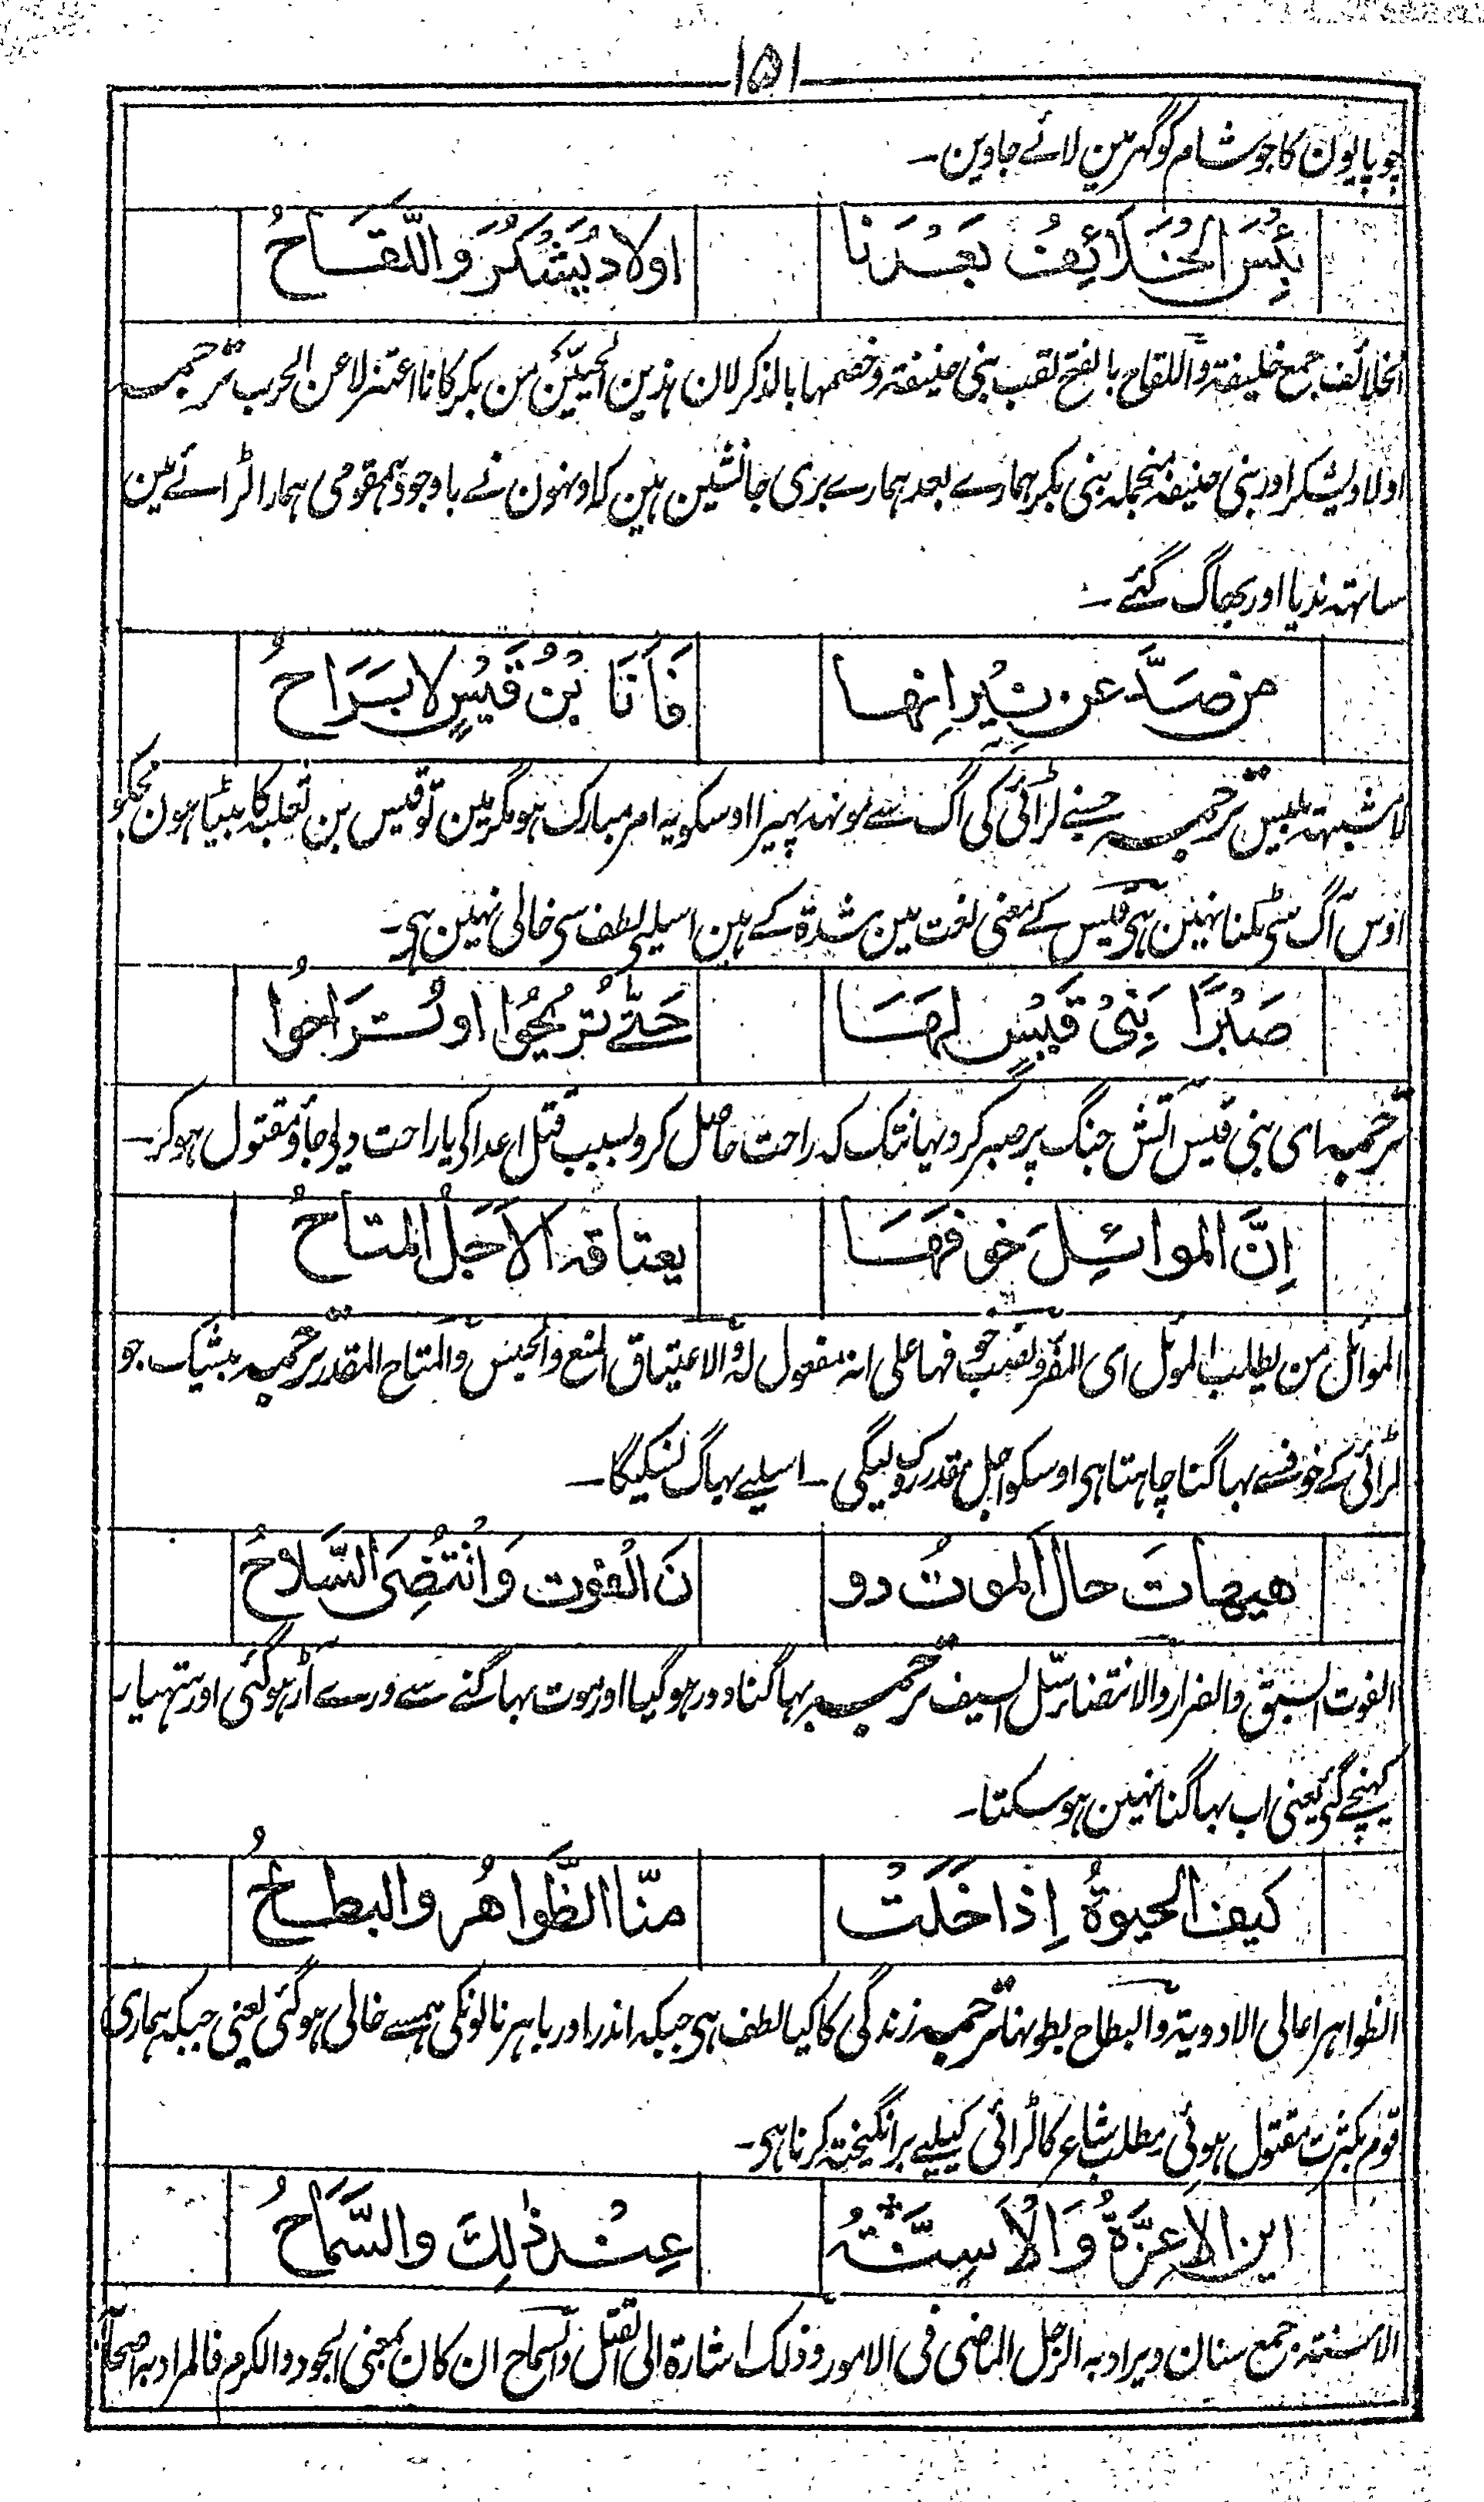 ۱۵۱
چوپایون کا جو شام کو گہر مین لائے جاوین۔
بِئْسَ الْخَلَائِفُ بَعْدَنَا اولادُ يَشْكُرَ وَاللَّقَاحُ
الخلائف جمع خلیفة واللقاح بالفتح لقب بنی حنیفة وخصمہا بالذکر لان ہذین الحیّین من بکر کانا اعتزلا عن الحرب ترجمہ
اولاد یشکر اور بنی حنیفہ منجملہ بنی بکر ہمارے بعد ہمارے بری جانشین ہین کہ اونہون نے باوجود ہمقومی ہمارا لڑائے مین
ساتہہ ندیا اور بھاگ گئے۔
من صَدَّ عن نِيرانِها فَأَنَا بْنُ قَيْسٍ لا بَرَاحُ
لا مشبہتہ بلیس ترجمہ جسنے لڑائی کی آگ سے مونہہ پہیرا اوسکو یہ امر مبارک ہو مگر مین تو قیس بن ثعلبہ کا بیٹا ہون مجکو
اوس آگ سی ٹلنا نہین ہی قیس کے معنی لغت مین شدة کے ہین اسلیے لطف سی خالی نہین ہی۔
صَبْرًا بَنِيْ قَيْسٍ لَهَا حَتّٰى تُرِيْحُوْا او تُسْتَرَاحُوا
ترجمہ ای بنی قیس آتش جنگ پر صبر کرو یہانتک کہ راحت حاصل کرو بسبب قتل اعدا کی یا راحت دیے جاؤ مقتول ہوکر۔
اِنَّ الموائِلَ خوفَهَا يعتاقه الاَجَلُ المتاحُ
الموائل من یطلب الموئل ای المفر ونصب خوفہا علی انہ مفعول لہ والاعتیاق المنع والحبس والمتاح المقدر ترجمہ بیشک جو
لڑائی کے خوف سے بہاگنا چاہتا ہی اوسکو اجل مقدر روک لیگی۔ اسلیے بہاگ نسکیگا۔
هيهاتَ حال الموتُ دو نَ الْفوت وَانْتُضِيَ السِّلَاحُ
الفوت السبق والفرار والانتضا سَلّ السیف ترجمہ بہاگنا دور ہوگیا اور موت بہاگنے سے ورے آڑ ہوگئی اور ہتہیار
کہنچے گئی یعنی اب بہاگنا نہین ہوسکتا۔
كيف الحيوةُ اِذا خَلَتْ منّا الظَّواهرُ والبطاحُ
الظواہر اعالی الاودیة والبطاح بطونہا ترجمہ زندگی کا کیا لطف ہی جبکہ اندر اور باہر نالونکی ہمسے خالی ہوگئی یعنی جبکہ ہماری
قوم بکثرت مقتول ہوئی مطلب شاعر کا لڑائی کیلیے برانگیختہ کرنا ہی۔
اين الاَعِزَّةُ وَالْاَسِنَّةُ عِنْدَ ذٰلِكَ والسَّمَاحُ
الاسنتہ جمع سنان ویراد بہ الرجل الماضی فی الامور وذلک اشارة الی القتل والسماح ان کان بمعنی الجود والکرم فالمراد بہ